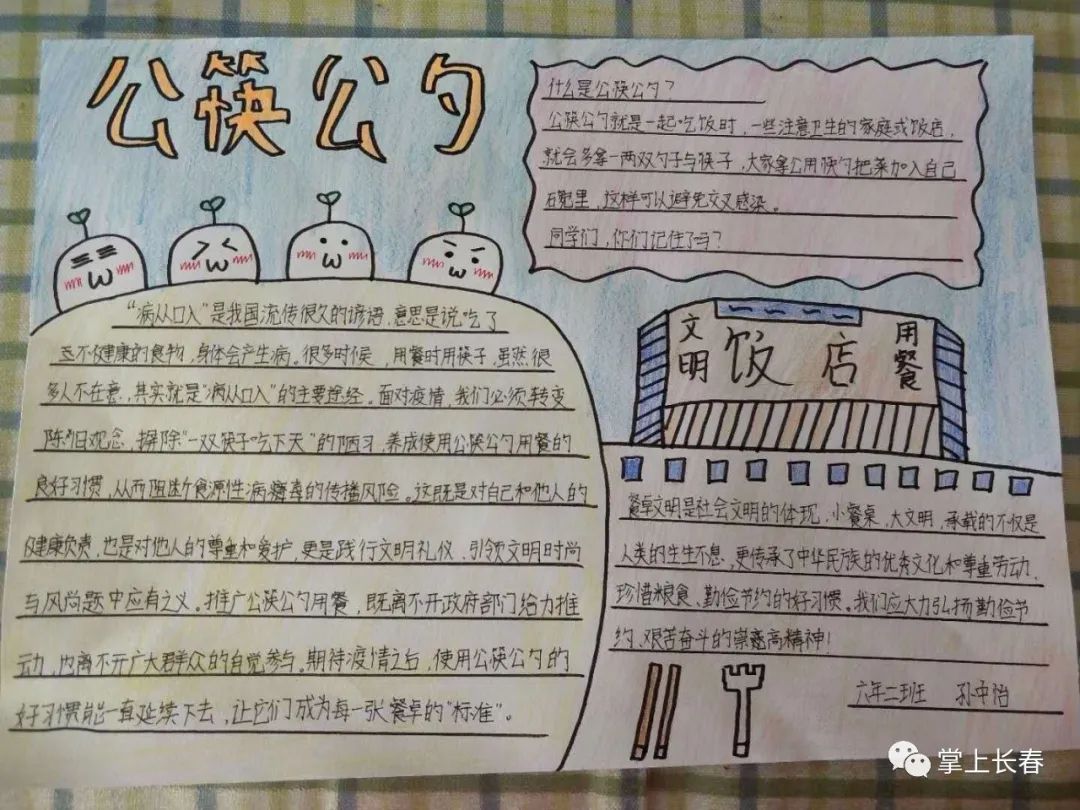 公筷公勺
什么是公筷公勺？
公筷公勺就是一起吃饭时，一些注意卫生的家庭或饭店，
就会多拿一两双勺子与筷子，大家拿公用筷勺把菜加入自己
碗里，这样可以避免交叉感染。
同学们，你们记住了吗？
“病从口入”是我国流传很久的谚语，意思是说吃了
不健康的食物，身体会产生病。很多时候，用餐时用筷子，虽然很
多人不在意，其实就是“病从口入”的主要途经。面对疫情，我们必须转变
陈旧观念，摒除“一双筷子吃下天”的陋习，养成使用公筷公勺用餐的
良好习惯，从而阻断食源性病毒的传播风险。这既是对自己和他人的
健康负责，也是对他人的尊重和爱护，更是践行文明礼仪、引领文明时尚
与风尚题中应有之义。推广公筷公勺用餐，既离不开政府部门给力推
动，也离不开广大群众的自觉参与。期待疫情之后，使用公筷公勺的
好习惯能一直延续下去，让它们成为每一张餐桌的“标准”。
文明
饭店
用餐
餐桌文明是社会文明的体现，小餐桌，大文明，承载的不仅是
人类的生生不息，更传承了中华民族的优秀文化和尊重劳动、
珍惜粮食、勤俭节约的好习惯。我们应大力弘扬勤俭节
约、艰苦奋斗的崇高精神！
六年二班 孙中怡
掌上长春